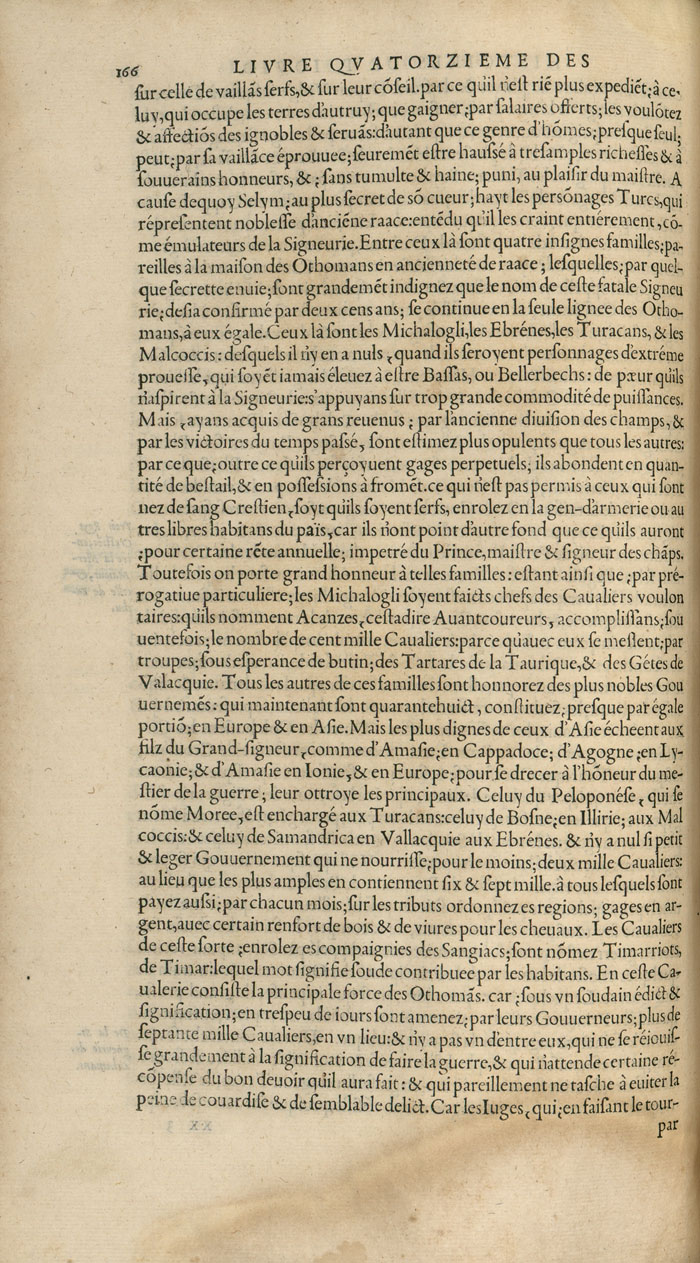 166 LIVRE QVATORZIEME DES
ſur celle de vaillãs ſerfs,& ſur leur cõſeil.par ce qu'il n'eſt riẽ plus expediẽt;à ce-
luy,qui occupe les terres d'autruy; que gaigner;par ſalaires offerts; les voulõtez
& affectiõs des ignobles & ſeruãs:d'autant que ce genre d'hõmes;preſque ſeul;
peut;par ſa vaillãce éprouuee;ſeuremẽt eſtre hauſsé à treſamples richeſſes & à
ſouuerains honneurs, &; ſans tumulte & haine; puni, au plaiſir du maiſtre. A
cauſe dequoy Selym;au plus ſecret de sõ cueur; hayt les persõnages Turcs,qui
répreſentent nobleſſe d'anciéne raace:entédu qu'il les craint entierement, cõ-
me émulateurs de la Signeurie.Entre ceux là ſont quatre inſignes familles;pa-
reilles à la maiſon des Othomans en ancienneté de raace; leſquelles;par quel-
que ſecrette enuie;ſont grandemẽt indignez que le nom de ceſte fatale Signeu
rie;deſia confirmé par deux cens ans; ſe continue en la ſeule lignee des Otho-
mans,à eux égale.Ceux là ſont les Michalogli,les Ebrénes,les Turacans, & les
Malcoccis: deſquels il n'y en a nuls, quand ils ſeroyent perſonnages d'extréme
proueſſe, qui ſoyẽt iamais éleuez à eſtre Baſſas, ou Bellerbechs: de pœur qu'ils
n'aſpirent à la Signeurie:s'appuyans ſur trop grande commodité de puiſſances.
Mais, ayans acquis de grans reuenus; par l'ancienne diuiſion des champs, &
par les victoires du temps paſsé, ſont eſtimez plus opulents que tous les autres:
par ce que;outre ce qu'ils perçoyuent gages perpetuels; ils abondent en quan-
tité de beſtail,& en poſſeſsions à fromẽt.ce qui n'eſt pas permis à ceux qui ſont
nez de ſang Creſtien, ſoyt qu'ils ſoyent ſerfs, enrolez en la gen-d'armerie ou au
tres libres habitans du païs, car ils n'ont point d'autre fond que ce qu'ils auront
;pour certaine rẽte annuelle; impetré du Prince,maiſtre & ſigneur des chãps.
Toutefois on porte grand honneur à telles familles: eſtant ainſi que;par pré-
rogatiue particuliere; les Michalogli ſoyent faicts chefs des Caualiers voulon
taires:qu'ils nomment Acanzes, c'eſtadire Auantcoureurs, accompliſſans;ſou
uentefois; le nombre de cent mille Caualiers:parce qu'auec eux ſe meſlent;par
troupes;ſous eſperance de butin; des Tartares de la Taurique,& des Gétes de
Valacquie. Tous les autres de ces familles ſont honnorez des plus nobles Gou
uernemẽs: qui maintenant ſont quarantehuict, conſtituez;preſque par égale
portiõ;en Europe & en Aſie.Mais les plus dignes de ceux d'Aſie écheent aux
filz du Grand-ſigneur, comme d'Amaſie;en Cappadoce; d'Agogne;en Ly-
caonie;& d'Amaſie en Ionie, & en Europe;pour ſe drecer à l'hõneur du me-
ſtier de la guerre; leur ottroye les principaux. Celuy du Peloponéſe, qui ſe
nõme Moree,eſt enchargé aux Turacans:celuy de Boſne;en Illirie; aux Mal
coccis:& celuy de Samandrica en Vallacquie aux Ebrénes. & n'y a nul ſi petit
& leger Gouuernement qui ne nourriſſe;pour le moins; deux mille Caualiers:
au lieu que les plus amples en contiennent ſix & ſept mille.à tous leſquels ſont
payez auſsi;par chacun mois;ſur les tributs ordonnez es regions; gages en ar-
gent,auec certain renfort de bois & de viures pour les cheuaux. Les Caualiers
de ceſte ſorte;enrolez es compaignies des Sangiacs;ſont nõmez Timarriots,
de Timar:lequel mot ſignifie ſoude contribuee par les habitans. En ceſte Ca-
ualerie conſiſte la principale force des Othomãs. car;ſous vn ſoudain édict &
ſignification;en treſpeu de iours ſont amenez;par leurs Gouuerneurs;plus de
ſeptante mille Caualiers,en vn lieu:& n'y a pas vn d'entre eux,qui ne ſe réiouiſ-
ſe grandement à la ſignification de faire la guerre,& qui n'attende certaine ré-
cõpenſe du bon deuoir qu'il aura fait: & qui pareillement ne taſche à euiter la
peine de couardiſe & de ſemblable delict. Car les Iuges, qui;en faiſant le tour-
par